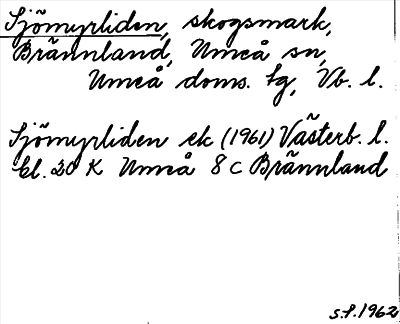 Sjömyrliden, skogsmark,
Brännland, Umeå sn,
Umeå doms. tg, Vb. l.
Sjömyrliden ek (1961) Västerb. l.
bl. 20 K Umeå 8 C Brännland
s.f. 1962